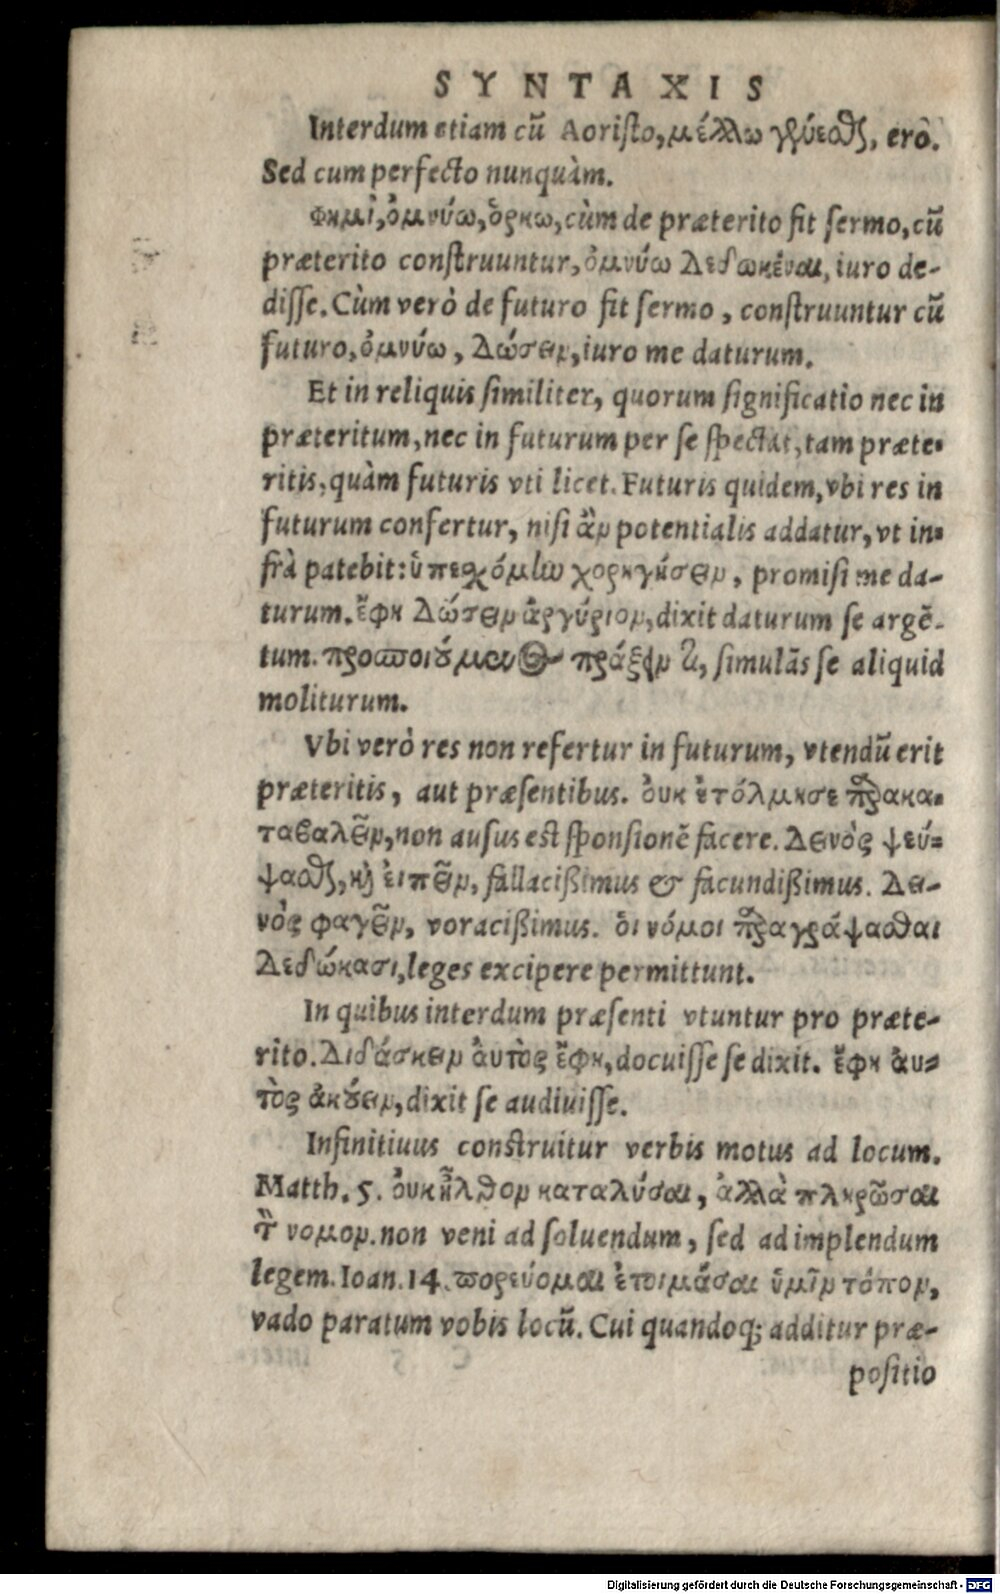 SYNTAXIS
Interdum etiam cū Aoristo, μέλλω γενέσθαι, ero.
Sed cum perfecto nunquàm.
Φημὶ, ὀμνύω, ὅρκω, cùm de præterito fit sermo, cū
præterito construuntur, ὀμνύω Δεδωκέναι, iuro de-
disse. Cùm verò de futuro fit sermo, construuntur cū
futuro, ὀμνύω, Δώσειν, iuro me daturum.
Et in reliquis similiter, quorum significatio nec in
præteritum, nec in futurum per se spectat, tam præte-
ritis, quàm futuris vti licet. Futuris quidem, vbi res in
futurum confertur, nisi ἂν potentialis addatur, vt in-
frà patebit: ὑπεχόμην χορηγήσειν, promisi me da-
turum. ἔφη Δώσειν ἀργύριον, dixit daturum se argē-
tum. προσποιούμενος πράξειν τι, simulās se aliquid
moliturum.
Vbi verò res non refertur in futurum, vtendū erit
præteritis, aut præsentibus. ὀυκ ἐτόλμησε παρακα-
ταβαλεῖν, non ausus est sponsionē facere. Δεινὸς ψεύ-
ψασθαι, καὶ ἐιπεῖν, fallacißimus & facundißimus. Δει-
νὸς φαγεῖν, voracißimus. ὁι νόμοι παραγράψασθαι
Δεδώκασι, leges excipere permittunt.
In quibus interdum præsenti vtuntur pro præte-
rito. Διδάσκειν ἀυτὸς ἔφη, docuisse se dixit. ἔφη ἀυ-
τὸς ἀκούειν, dixit se audiuisse.
Infinitiuus construitur verbis motus ad locum.
Matth. 5. ὀυκ ἦλθον καταλύσαι, ἀλλὰ πληρῶσαι
τὸν νομον. non veni ad soluendum, sed ad implendum
legem. Ioan. 14. πορεύομαι ἑτοιμάσαι ὑμῖν τόπον,
vado paratum vobis locū. Cui quandoq; additur præ-
positio
Digitalisierung gefördert durch die Deutsche Forschungsgemeinschaft - DFG